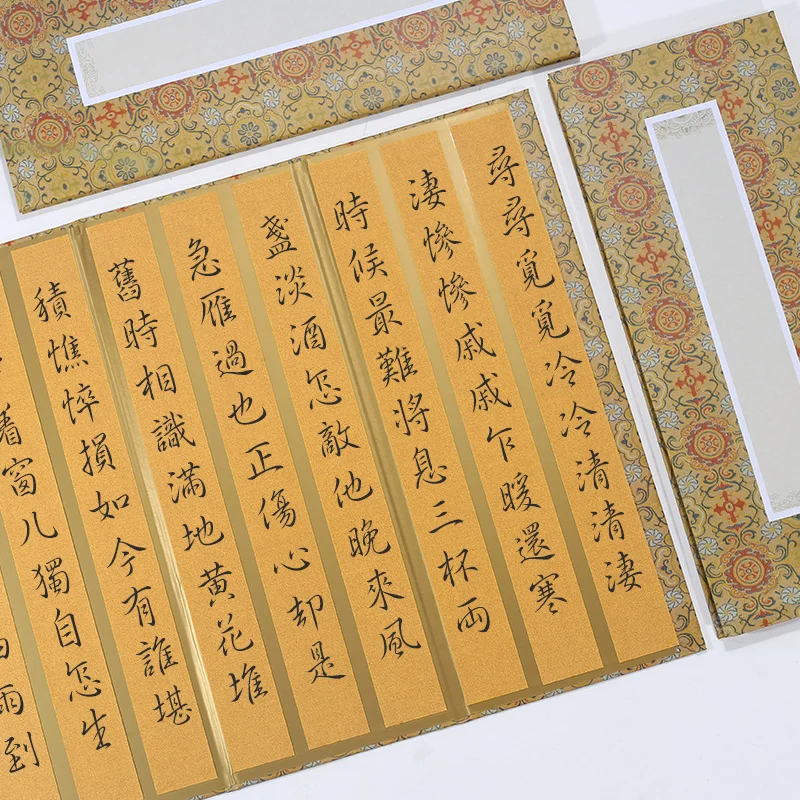 尋尋覓覓冷冷清清淒
淒慘慘戚戚乍暖還寒
時候最難將息三杯兩
盞淡酒怎敵他晚來風
急雁過也正傷心却是
舊時相識滿地黃花堆
積憔悴損如今有誰堪
着窗儿獨自怎生
雨到